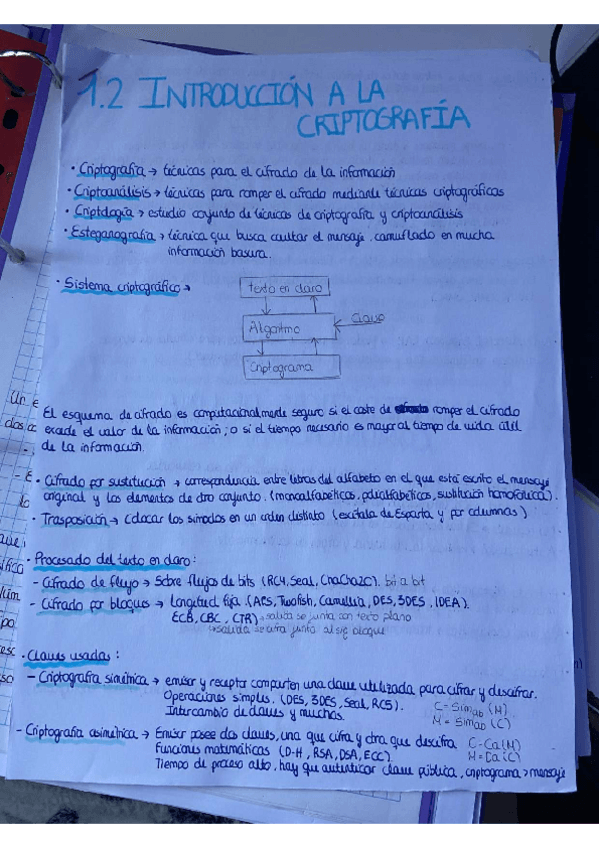 1.2 INTRODUCCIÓN A LA
CRIPTOGRAFÍA
· Criptografía → técnicas para el cifrado de la información
· Criptoanálisis → técnicas para romper el cifrado mediante técnicas criptográficas
· Criptología → estudio conjunto de técnicas de criptografía y criptoanálisis
· Esteganografía → técnica que busca ocultar el mensaje, camuflado en mucha
información basura.
· Sistema criptográfico →
texto en claro
Algoritmo
Clave
Criptograma
El esquema de cifrado es computacionalmente seguro si el coste de romper el cifrado
excede el valor de la información; o si el tiempo necesario es mayor al tiempo de vida útil
de la información.
· Cifrado por sustitución → correspondencia entre letras del alfabeto en el que está escrito el mensaje
original y los elementos de otro conjunto. (monoalfabéticos, polialfabéticos, sustitución homofónica).
· Trasposición → colocar los símbolos en un orden distinto (escítala de Esparta, y por columnas)
· Procesado del texto en claro:
- Cifrado de flujo → Sobre flujos de bits (RC4, Seal, ChaCha20). bit a bit
- Cifrado por bloques → Longitud fija. (AES, Twofish, Camellia, DES, 3DES, IDEA).
ECB, CBC, CTR → salida se junta con texto plano
→ salida se cifra junto al sig bloque
· Claves usadas:
- Criptografía simétrica → emisor y receptor comparten una clave utilizada para cifrar y descifrar.
Operaciones simples. (DES, 3DES, Seal, RC5). C = Sim ab (M)
Intercambio de claves y muchas. M = Sim ab (C)
- Criptografía asimétrica → Emisor posee dos claves, una que cifra y otra que descifra C = Ca (M)
Funciones matemáticas (D-H, RSA, DSA, ECC). M = Da (C)
Tiempo de proceso alto, hay que autenticar clave pública, criptograma > mensaje